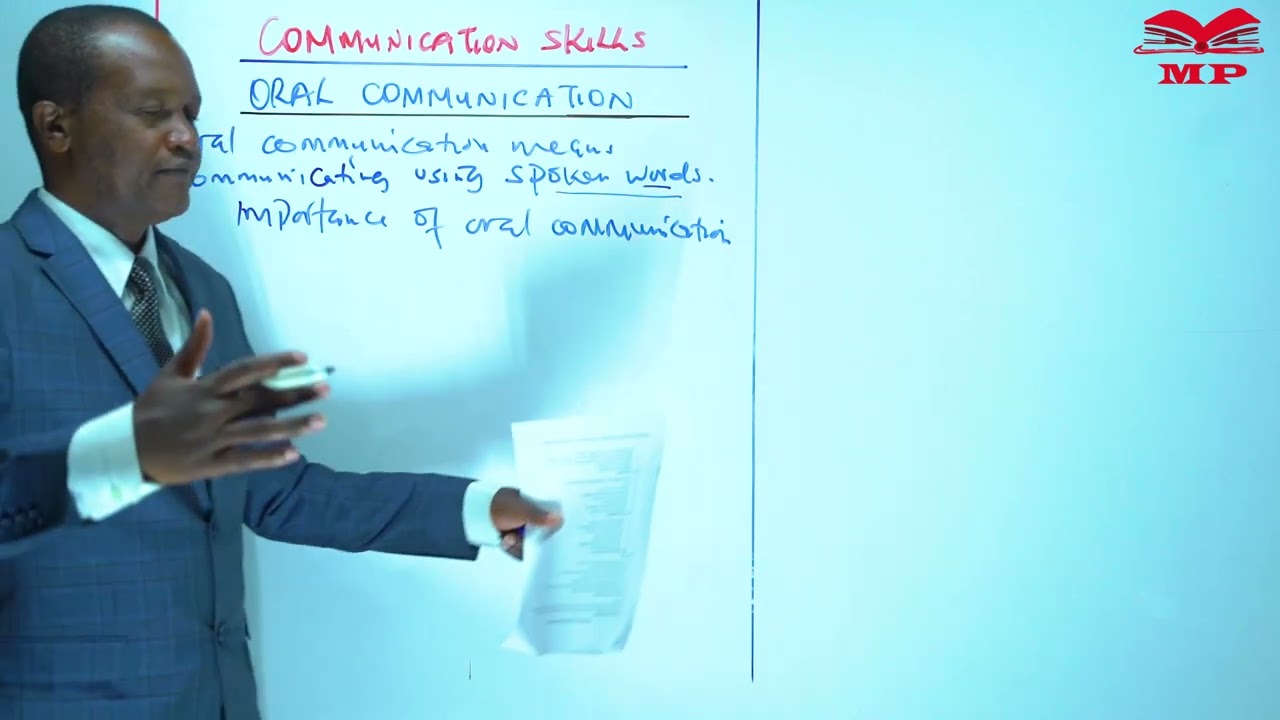 COMMUNICATION SKILLS
ORAL COMMUNICATION
ral communication means
ommunicating using spoken words.
Importance of oral communication
MP